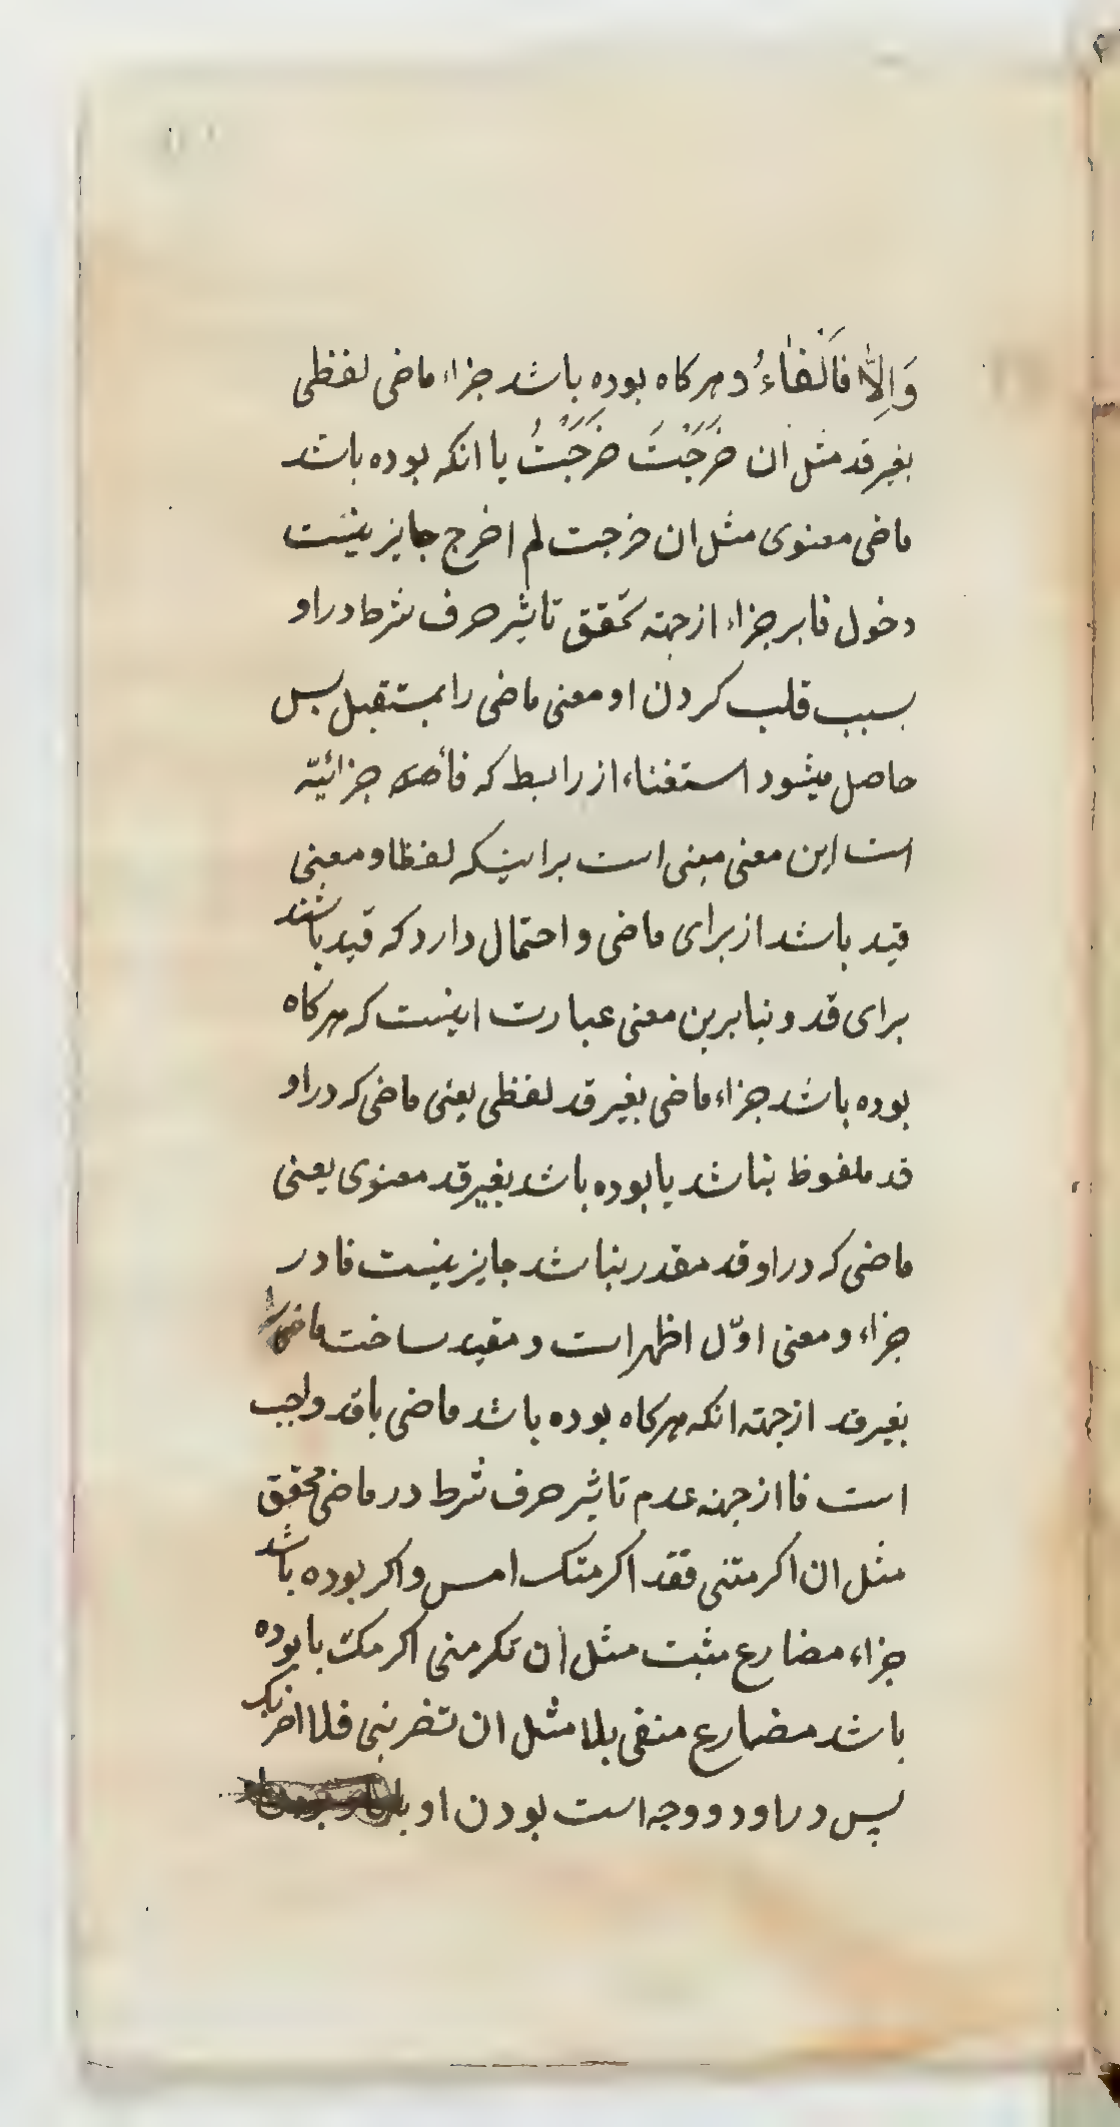 وَاِلّا فَالْفاءُ و هرکاه بوده باشد جزاء ماضی لفظی
بغیر قد مثل ان خَرَجْتَ خَرَجْتُ یا انکه بوده باشد
ماضی معنوی مثل ان خرجت لم اخرج جایز نیست
دخول فا بر جزاء از جهته تحقق تاثیر حرف شرط در او
بسبب قلب کردن او معنی ماضی را بمستقبل پس
حاصل میشود استغناء از رابط که فاء جزائیّه
است این معنی مبنی است بر اینکه لفظا و معنی
قید باشد از برای ماضی و احتمال دارد که قید باشند
برای قد و بنابرین معنی عبارت اینست که هرکاه
بوده باشد جزاء ماضی بغیر قد لفظی یعنی ماضی که در او
قد ملفوظ نباشد یا بوده باشد بغیر قد معنوی یعنی
ماضی که در او قد مقدر نباشد جایز نیست فا در
جزاء و معنی اوّل اظهر است و مقید ساخت ماضی را
بغیر قد از جهته انکه هرکاه بوده باشد ماضی با قد واجب
است فا از جهته عدم تاثیر حرف شرط در ماضی محقق
مثل ان اکرمتنی فقد اکرمتک امس و اکر بوده باشد
جزاء مضارع مثبت مثل ان تکرمنی اکرمک یا بوده
باشد مضارع منفی بلا مثل ان تضربنی فلا اضربک
پس در او دو وجه است بودن او